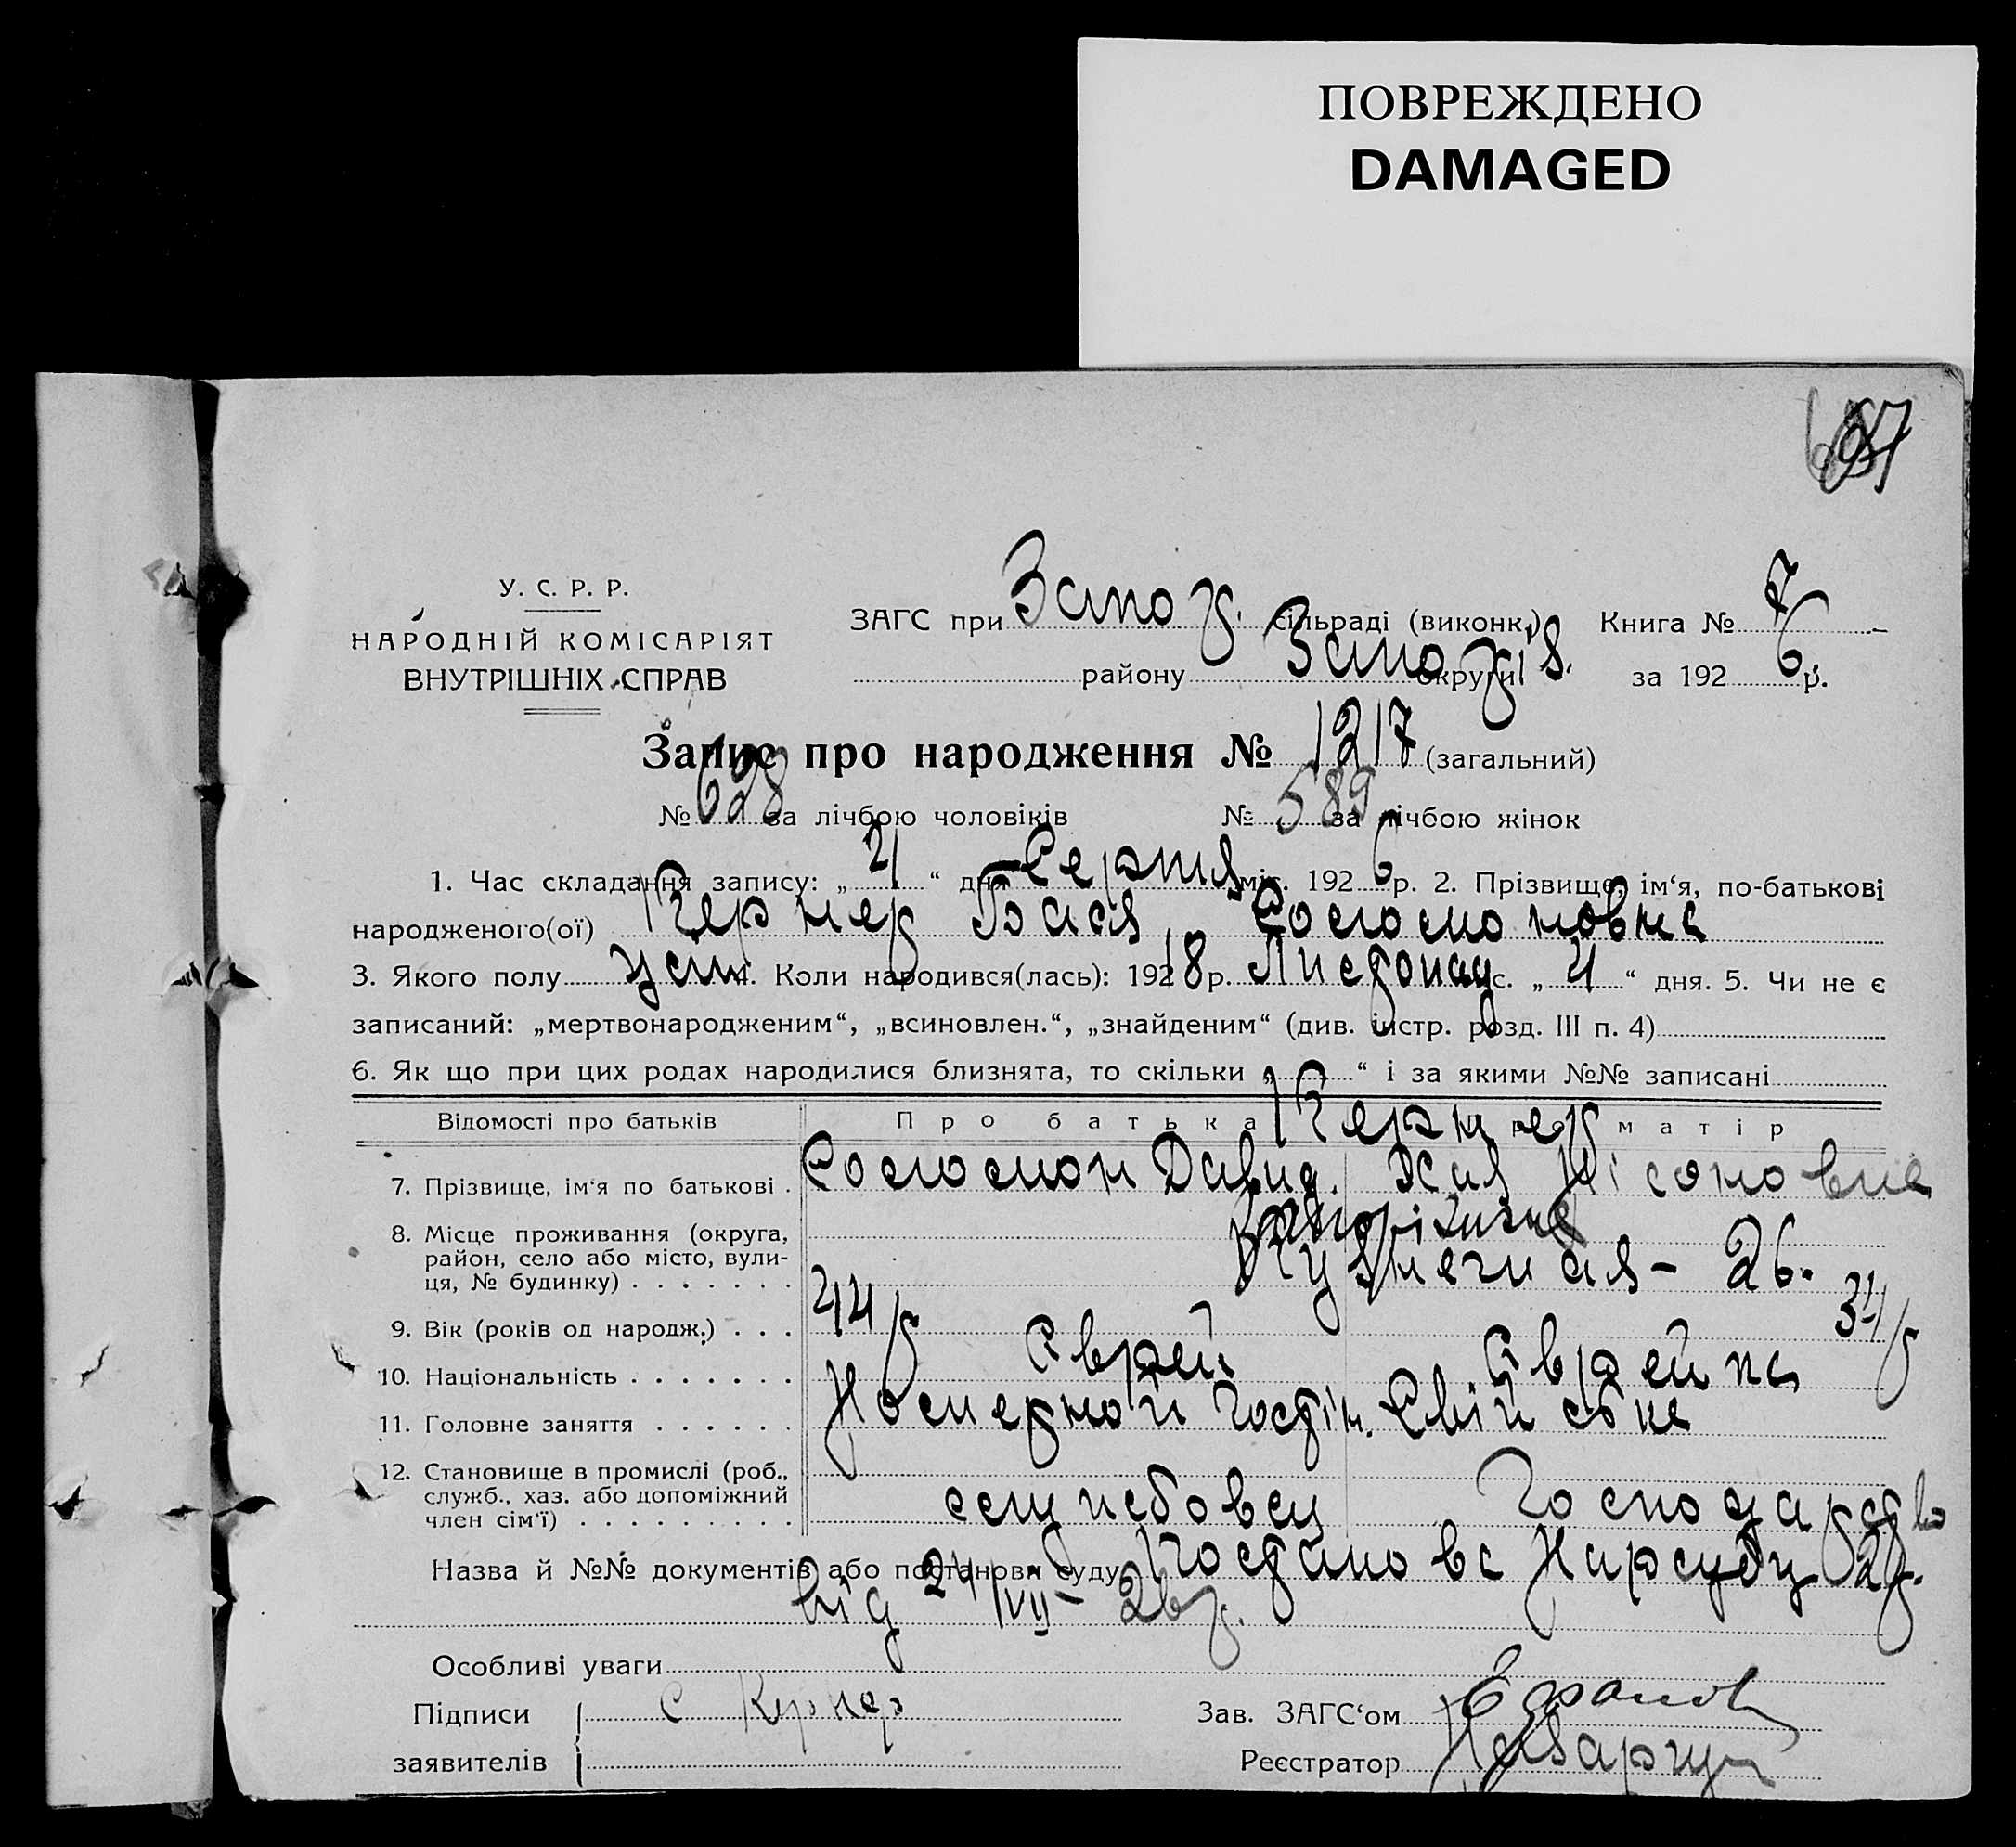 ПОВРЕЖДЕНО
DAMAGED
У. С. Р. Р.
НАРОДНІЙ КОМІСАРІЯТ
ВНУТРІШНІХ СПРАВ
ЗАГС при Запор. сільраді (виконк.) Книга № 7
району Запоріз. округи за 1926 р.
Запис про народження № 1217 (загальний)
№ 628 за лічбою чоловіків № 589 за лічбою жінок
1. Час складання запису: „ 21 “ дня Серпня міс. 1926 р. 2. Прізвище, ім‘я, по-батькові
народженого(ої) Кернер Бася Соломоновна
3. Якого полу жін 4. Коли народився(лась): 1918 р. Листопад с. „ 21 “ дня. 5. Чи не є
записаний: „мертвонародженим“, „всиновлен.“, „знайденим“ (див. інстр. розд. III п. 4)
6. Як що при цих родах народилися близнята, то скільки „ “ і за якими №№ записані
Відомості про батьків Про батька Про матір
Кернер
7. Прізвище, ім‘я по батькові . Соломон Давид. Хая
8. Місце проживання (округа,
район, село або місто, вули-
ця, № будинку) . . . . . . . Запоріжжя
26.
9. Вік (років од народж.) . . . 44 р 34 р
10. Національність . . . . . . . Єврей Єврейка
11. Головне заняття . . . . . . Номерной гостін. Свійське
12. Становище в промислі (роб.,
служб., хаз. або допоміжний
член сім‘ї) . . . . . . . . . службовец господарство
Назва й №№ документів або постанови суду Постанова Нарсуду 2 р.
від 24/VII – 26 р.
Особливі уваги
Підписи С Кернер Зав. ЗАГС‘ом
заявителів Реєстратор